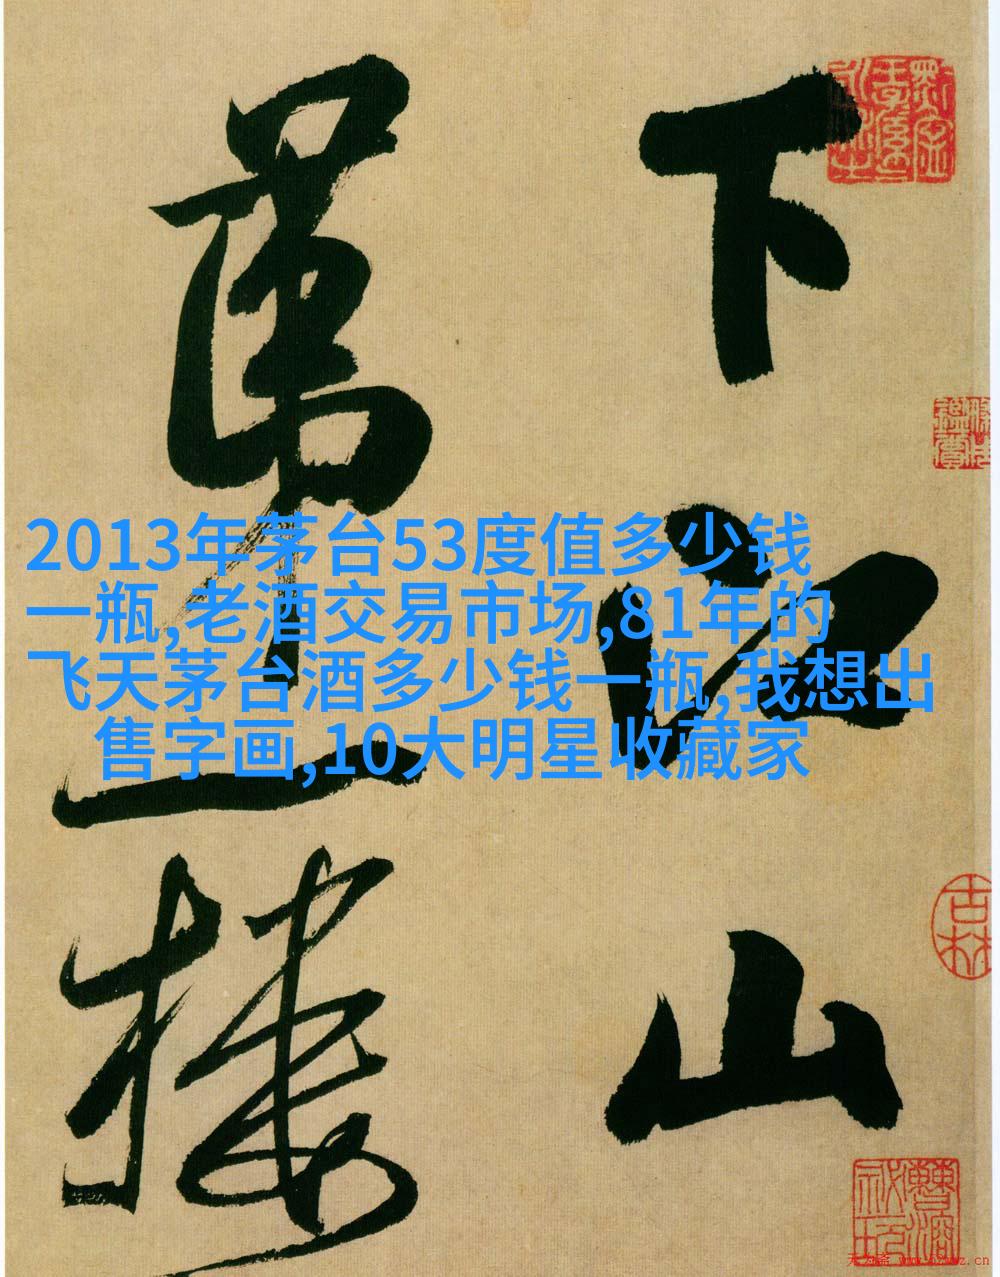 下江山
第一樓
2013年茅台53度值多少钱
一瓶,老酒交易市场,81年的
飞天茅台酒多少钱一瓶,我想出
售字画,10大明星收藏家